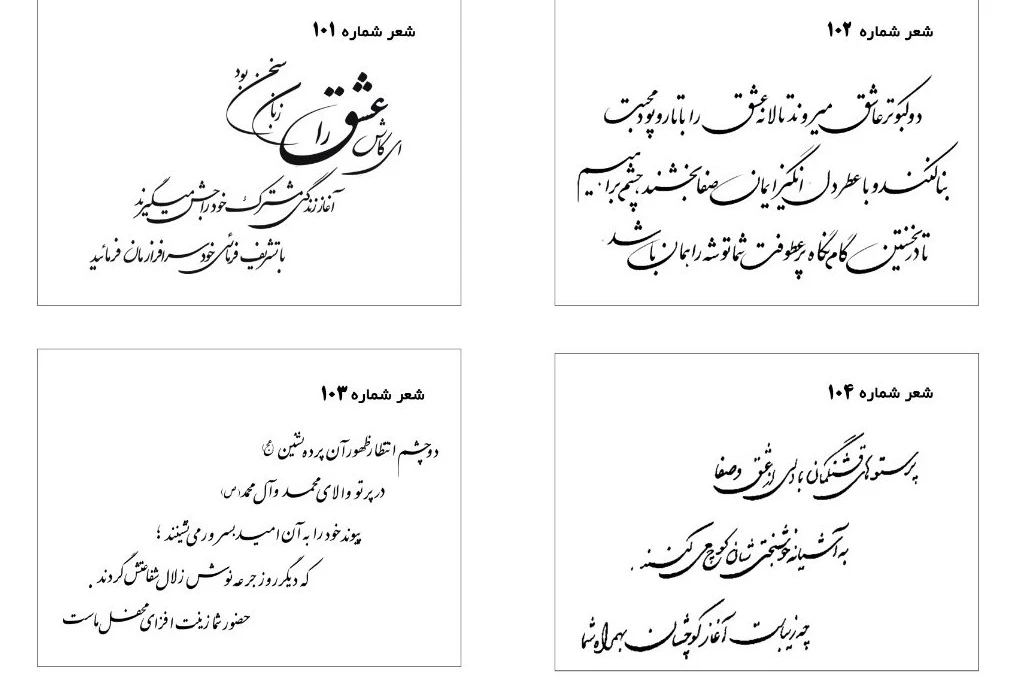 شعر شماره ۱۰۱
ای کاش عشق را زبان سخن بود
آغاز زندگی مشترک خود را جشن میگیرند
با تشریف فرمائی خود سرافرازمان فرمائید
شعر شماره ۱۰۲
دو کبوتر عاشق میروند تا لانه عشق را با تار و پود محبت
بنا کنند و با عطر دل انگیز ایمان صفا بخشند چشم براهیم
تا در نخستین گام نگاه پر عطوفت شما توشه راهمان باشد
شعر شماره ۱۰۳
دو چشم انتظار ظهور آن پرده نشین (عج)
در پرتو والای محمد و آل محمد (ص)
پیوند خود را به آن امید بسرور می نشینند ؛
که دیگر روز جرعه نوش زلال شفاعتش گردند .
حضور شما زینت افزای محفل ماست
شعر شماره ۱۰۴
پرستوهای قشنگمانی با دلی از عشق و صفا
به آشیانه خوشبختی شان کوچ می کنند .
چه زیباست آغاز کوچشان بهمراه شما